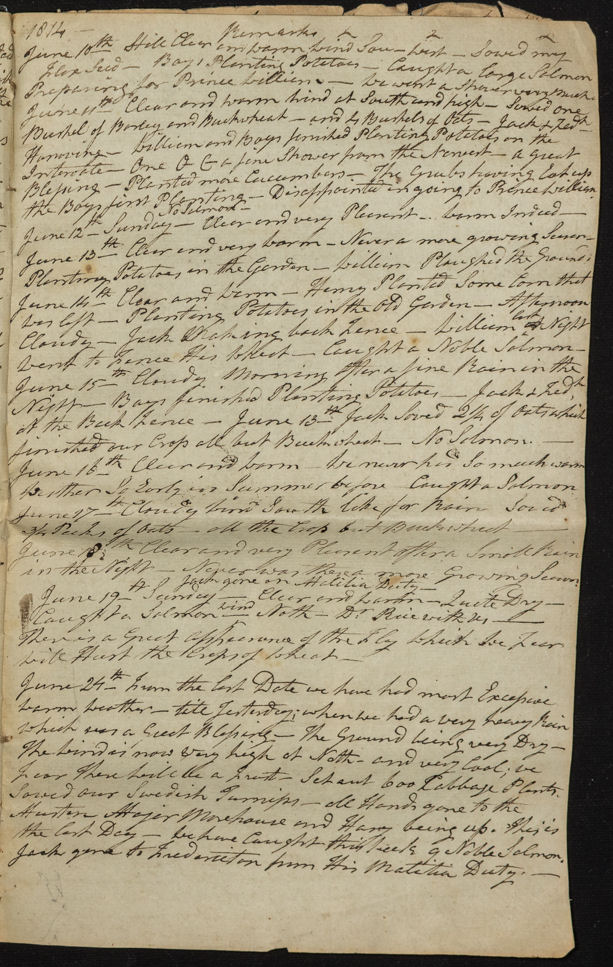 1814 — Remarks —
June 10th Still Clear and warm wind Sou-west — Sowed my
Flax Seed — Boys Planting Potatoes — Caught a Large Salmon
Preparing for Prince William — We want a Shower very much
June 11th Clear and warm wind at South and high — Sowed one
Bushel of Barley and Buckwheat — and 4 Bushels of Oats — Jack & Fedk
Harrowing — William and Boys finished Planting Potatoes on the
Intervale — One O C — a fine Shower from the Norwest — a great
Blessing — Planted more Cucumbers — The Grubs having Cut up
the Boys first Planting — Disappointed in going to Prince William
No Salmon —
June 12th Sunday — Clear and very Plesent — warm Indeed —
June 13th Clear and very warm — Never a more growing Season
Planting Potatoes in the Garden — William Ploughed the Ground
June 14th Clear and warm — Henry Planted Some Corn that
was left — Planting Potatoes in the Old Garden — Afternoon
Cloudy — Jack Making back Fence — William last Night
went to Fence His Wheat — Caught a Noble Salmon —
June 15th Cloudy Morning after a fine Rain in the
Night — Boys finished Planting Potatoes — Jack & Fedk
at the Back Fence — June 13th Jack Sowed 2¼ of Oats which
finished our Crop all but Buckwheat — No Salmon. —
June 16th Clear and warm We never had So much warm
weather So Early in Summer before Caught a Salmon
June 17th Cloudy wind South like for Rain Sowed
Pecks of Oats — all the Crop but Buckwheat
June 18th Clear and very Plesent after a Small Rain
in the Night — Never was there a more Growing Season
Jack gone on Malitia Duty —
June 19th Sunday — Clear and warm — Quite Dry —
Caught a Salmon — wind Noth — Dr Rice with us —
There is a Great appearance of the Fly which we fear
will Hurt the Crops of Wheat —
June 24th From the last Date we have had most Excesive
warm weather — till Yesterday; when we had a very heavy Rain
which was a Great Blessing — The Ground being very Dry —
The wind is now very high at Noth — and very Cool, we
fear There will be a Frost — Set out 600 Cabbage Plants.
Sowed our Swedish Turnips — all Hands gone to the
Major Morehouse and Harry being up. This is
the last Day — we have Caught this week 9 Noble Salmon.
Jack gone to Fredericton from His Malitia Duty. —